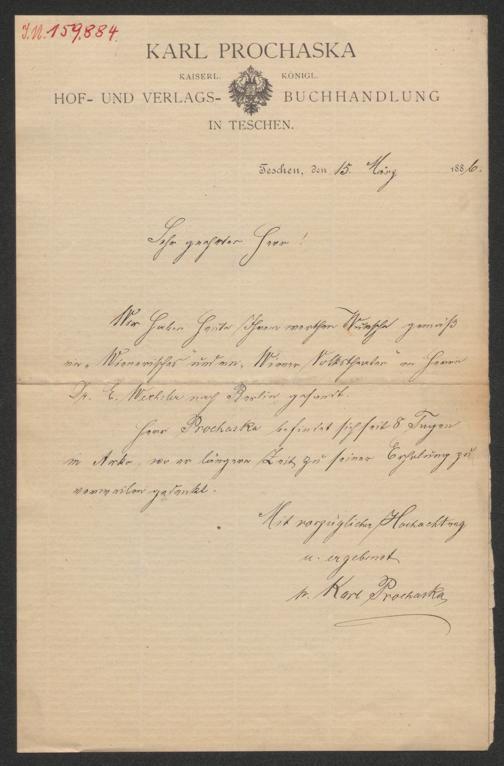 J.N. 159,884
KARL PROCHASKA
KAISERL. KÖNIGL.
HOF- UND VERLAGS- BUCHHANDLUNG
IN TESCHEN.
Teschen, den 15. März 1886.
Sehr geehrter Herr!
Wir haben heute Ihrem werthen Wunsche gemäß
ein „Wienerisches" und ein „Wiener Volkstheater" an Herrn
Dr. E. Wechsler nach Berlin gesandt.
Herr Prochaska befindet sich seit 8 Tagen
in Arco, wo er längere Zeit zu seiner Erholung zu
verweilen gedenkt.
Mit vorzüglicher Hochachtung
u. ergebenst
Karl Prochaska